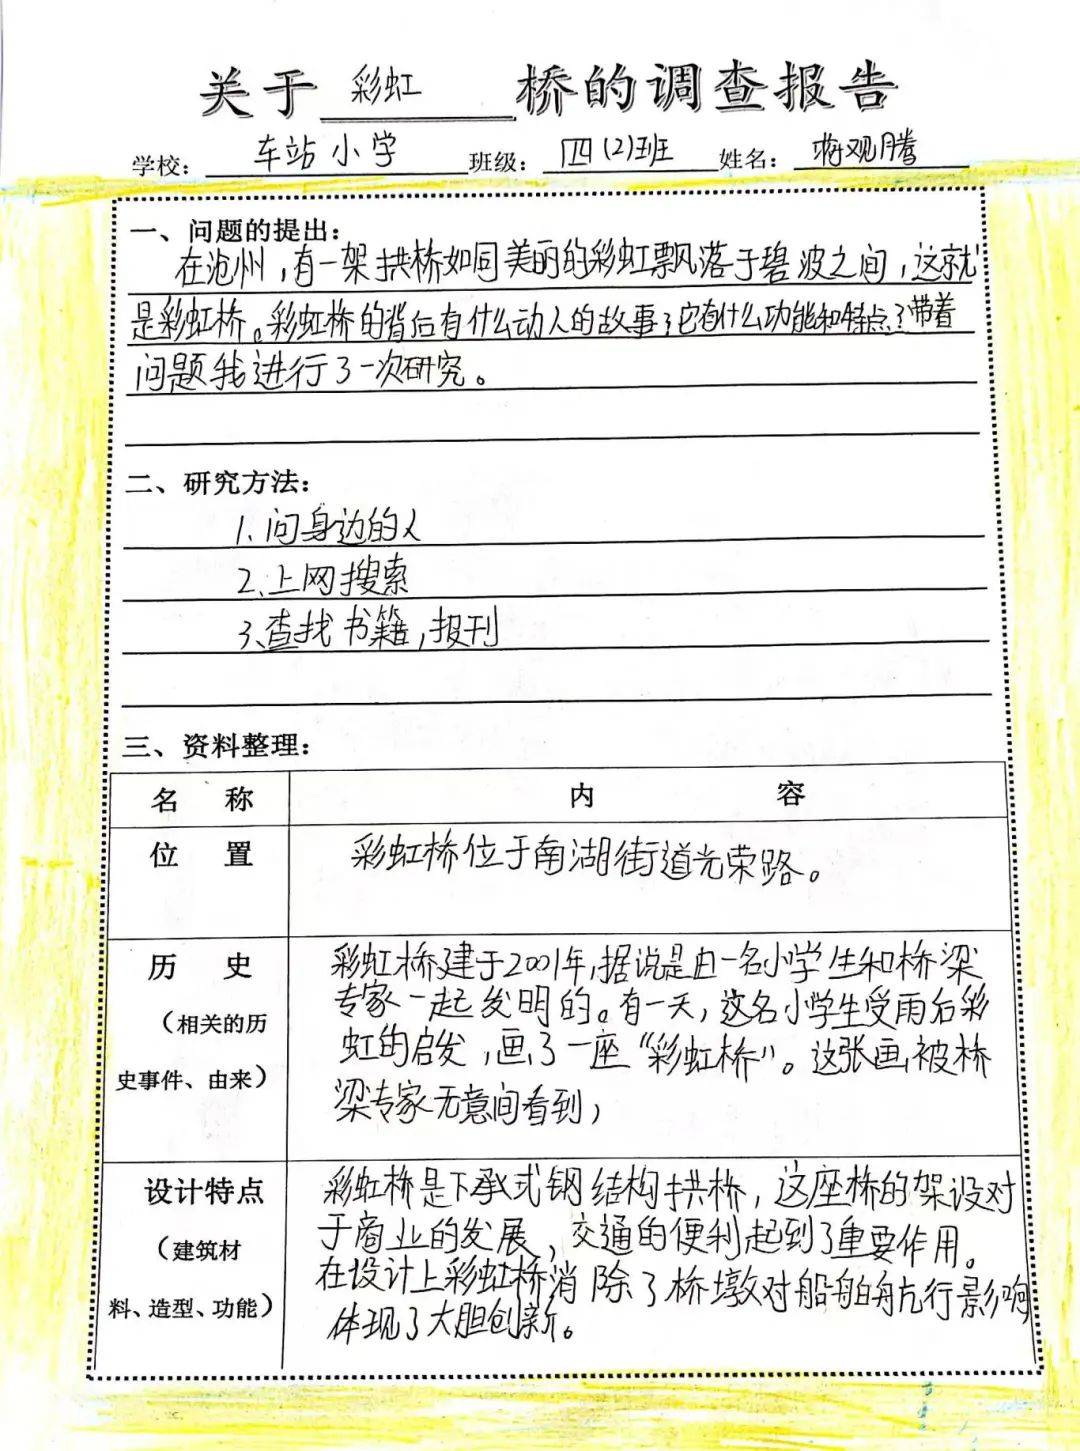 关于 彩虹 桥的调查报告
学校: 车站小学 班级: 四(2)班 姓名: 观腾
一、问题的提出:
在沧州,有一架拱桥如同美丽的彩虹飘落于碧波之间,这就
是彩虹桥。彩虹桥的背后有什么动人的故事?它有什么功能和特点?带着
问题我进行了一次研究。
二、研究方法:
1.问身边的人
2.上网搜索
3.查找书籍,报刊
三、资料整理:
名 称 内 容
位 置 彩虹桥位于南湖街道光荣路。
历 史
(相关的历
史事件、由来)
彩虹桥建于2001年,据说是由一名小学生和桥梁
专家一起发明的。有一天,这名小学生受雨后彩
虹的启发,画了一座“彩虹桥”。这张画被桥
梁专家无意间看到,
设计特点
(建筑材
料、造型、功能)
彩虹桥是下承式钢结构拱桥,这座桥的架设对
于商业的发展、交通的便利起到了重要作用。
在设计上彩虹桥消除了桥墩对船舶航行影响
体现了大胆创新。